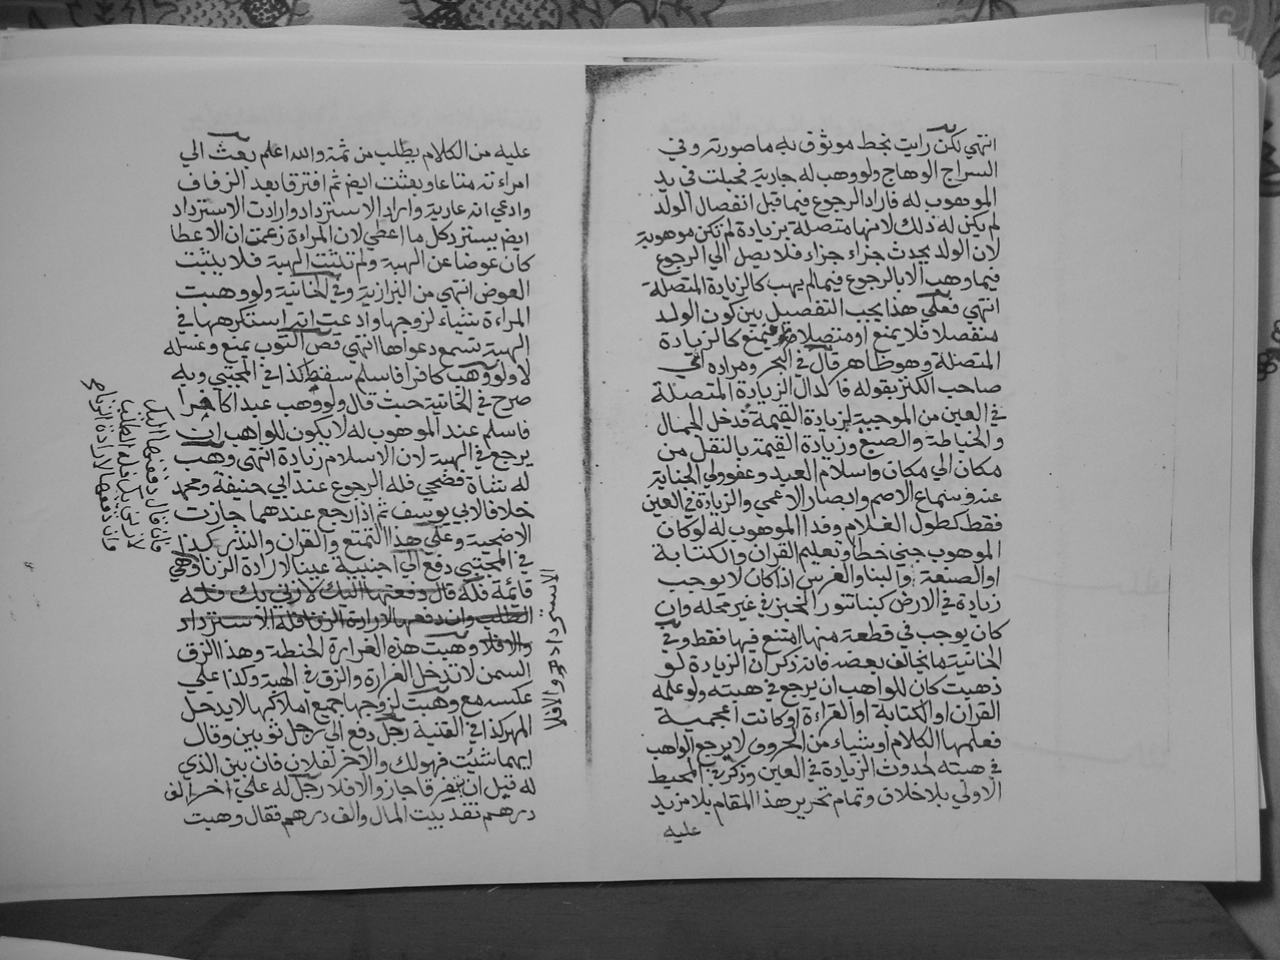 انتهي لكن رايت بخط موثوق به ما صورته وفي
السراج الوهاج ولو وهب له جارية فحبلت في يد
الموهوب له فاراد الرجوع فيها قبل انفصال الولد
لم يكن له ذلك لانها متصلة بزيادة لم تكن موهوبة
لان الولد يحدث جزاء جزاء فلا يصل الي الرجوع
فيما وهب الا بالرجوع فيما لم يهب كالزيادة المتصلة
انتهي فعلي هذا يجب التفصيل بين كون الولد
منفصلا فلا يمنع او متصلا فيمنع كالزيادة
المتصلة وهو ظاهر قال في البحر ومراده اي
صاحب الكنز بقوله فالدال الزيادة المتصلة
في العين من الموجبة لزيادة القيمة فدخل الجمال
والخياطة والصبغ وزيادة القيمة بالنقل من
مكان الي مكان واسلام العبد وعفو ولي الجناية
عنه وسماع الاصم وابصار الاعمي والزيادة في العين
فقط كطول الغلام وفدا الموهوب له لو كان
الموهوب جني خطا وتعليم القران والكتابة
او الصنعة والبنا والغرس اذا كان لا يوجب
زيادة في الارض كبنا تنور الخبز في غير محله وان
كان يوجب في قطعة منها امتنع فيها فقط وفي
الخانية ما يخالف بعضه فانه ذكر ان الزيادة لو
ذهبت كان للواهب ان يرجع في هبته ولو علمه
القران او الكتابة او القراءة او كانت اعجمية
فعلمها الكلام او شياء من الحروف لا يرجع الواهب
في هبته لحدوث الزيادة في العين وذكر في المحيط
الاولي بلا خلاف وتمام تحرير هذا المقام بلا مزيد
عليه
عليه من الكلام يطلب من ثمة والله اعلم بعث الي
امراءته متاعا وبعثت ايضم ثم افترقا بعد الزفاف
وادعي انه عارية واراد الاسترداد وارادت الاسترداد
ايضم يسترد كل ما اعطي لان المراءة زعمت ان الاعطا
كان عوضا عن الهبة ولم تثبت الهبة فلا يثبت
العوض انتهي من البزازية وفي الخانية ولو وهبت
المراءة شياء لزوجها وادعيت انه استكرهها في
الهبة تسمع دعواها انتهي قص الثوب يمنع وغسله
لا ولو وهب كافرا فاسلم سقط كذا في المجتبي وبه
صرح في الخانية حيث قال ولو وهب عبدا كافرا
فاسلم عند الموهوب له لا يكون للواهب ان
يرجع في الهبة لان الاسلام زيادة انتهي وهب
له شاة فضحي فله الرجوع عند ابي حنيفة ومحمد
خلافا لابي يوسف ثم اذا رجع عندهما جازت
الاضحية وعلي هذا التمتع والقران والنذر كذا
في المجتبي دفع الي اجنبية عينا لارادة الزنا وهي
قائمة فله قال دفعتها اليك لازني بك فله
الطلب وان دفعها لارادة الزفا فله الاسترداد
والا فلا وهبت هذه الغرارة لحنطة وهذا الزق
السمن لا تدخل الغرارة والزق في الهبة وكذا علي
عكسه مع وهبت لزوجها جميع املاكها لا يدخل
المهر كذا في القنية رجل دفع الي رجل ثوبين وقال
ايهما شئت فهو لك والاخر لفلان فان بين الذي
له قبل ان يتفرقا جاز والا فلا رجل له علي اخر الف
درهم نقد بيت المال والف درهم فقال وهبت
فان قال دفعتها اليك
لازني بك فله الطلب
وان دفعها لارادة الزواج
الاسترداد صح والا فلا